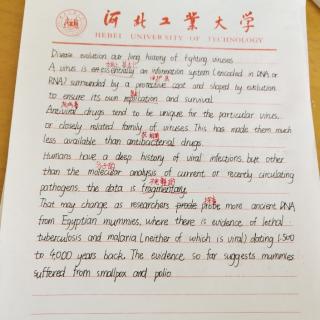 河北工业大学
HEBEI UNIVERSITY OF TECHNOLOGY
Disease evolution: our long history of fighting viruses
A virus is essentially an information system (encoded in DNA or
RNA) surrounded by a protective coat and shaped by evolution
to ensure its own replication and survival.
抗病毒
Antiviral drugs tend to be unique for the particular virus,
or closely related family of viruses. This has made them much
less available than antibacterial drugs.
Humans have a deep history of viral infections, but other
than the molecular analysis of current or recently circulating
pathogens, the data is fragmentary.
That may change as researchers probe more ancient DNA
from Egyptian mummies, where there is evidence of lethal
tuberculosis and malaria (neither of which is viral) dating 1,500
to 4,000 years back. The evidence so far suggests mummies
suffered from smallpox and polio.